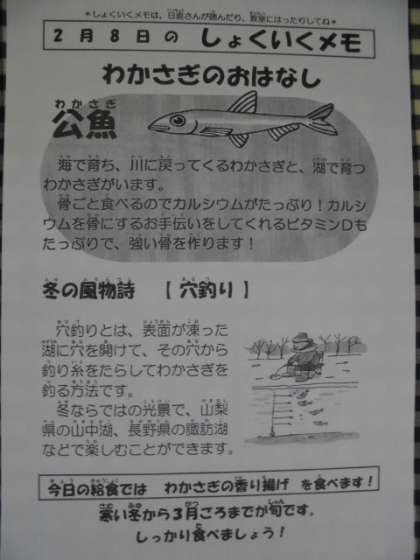 ＊しょくいくメモは、日直さんが読んだり、教室にはったりしてね＊
2月8日の しょくいくメモ
わかさぎのおはなし
わかさぎ
公魚
海で育ち、川に戻ってくるわかさぎと、湖で育つ
わかさぎがいます。
骨ごと食べるのでカルシウムがたっぷり！カルシ
ウムを骨にするお手伝いをしてくれるビタミンDも
たっぷりで、強い骨を作ります！
冬の風物詩 【 穴釣り 】
穴釣りとは、表面が凍った
湖に穴を開けて、その穴から
釣り糸をたらしてわかさぎを
釣る方法です。
冬ならではの光景で、山梨
県の山中湖、長野県の諏訪湖
などで楽しむことができます。
今日の給食では わかさぎの香り揚げ を食べます！
寒い冬から3月ころまでが旬です。
しっかり食べましょう！